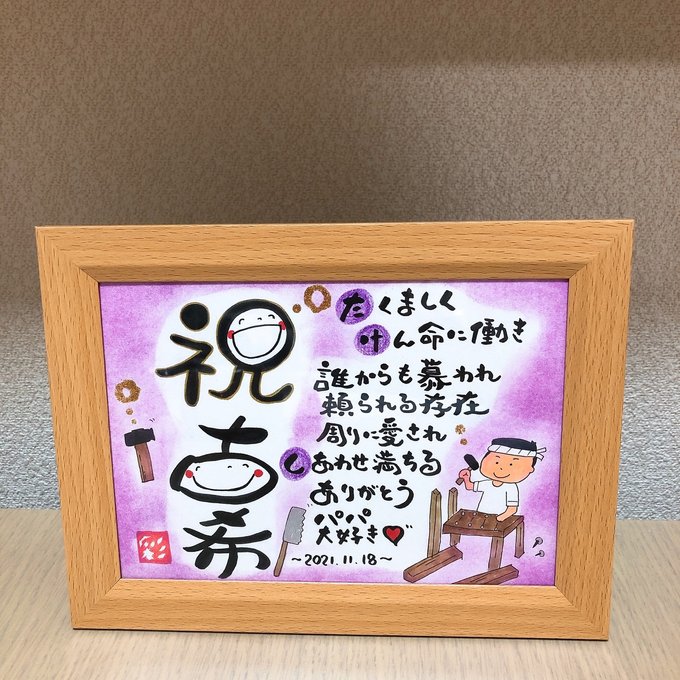 祝
古希
たくましく
けん命に働き
誰からも慕われ
頼られる存在
周りに愛され
しあわせ満ちる
ありがとう
パパ
大好き♥
~2021.11.18~